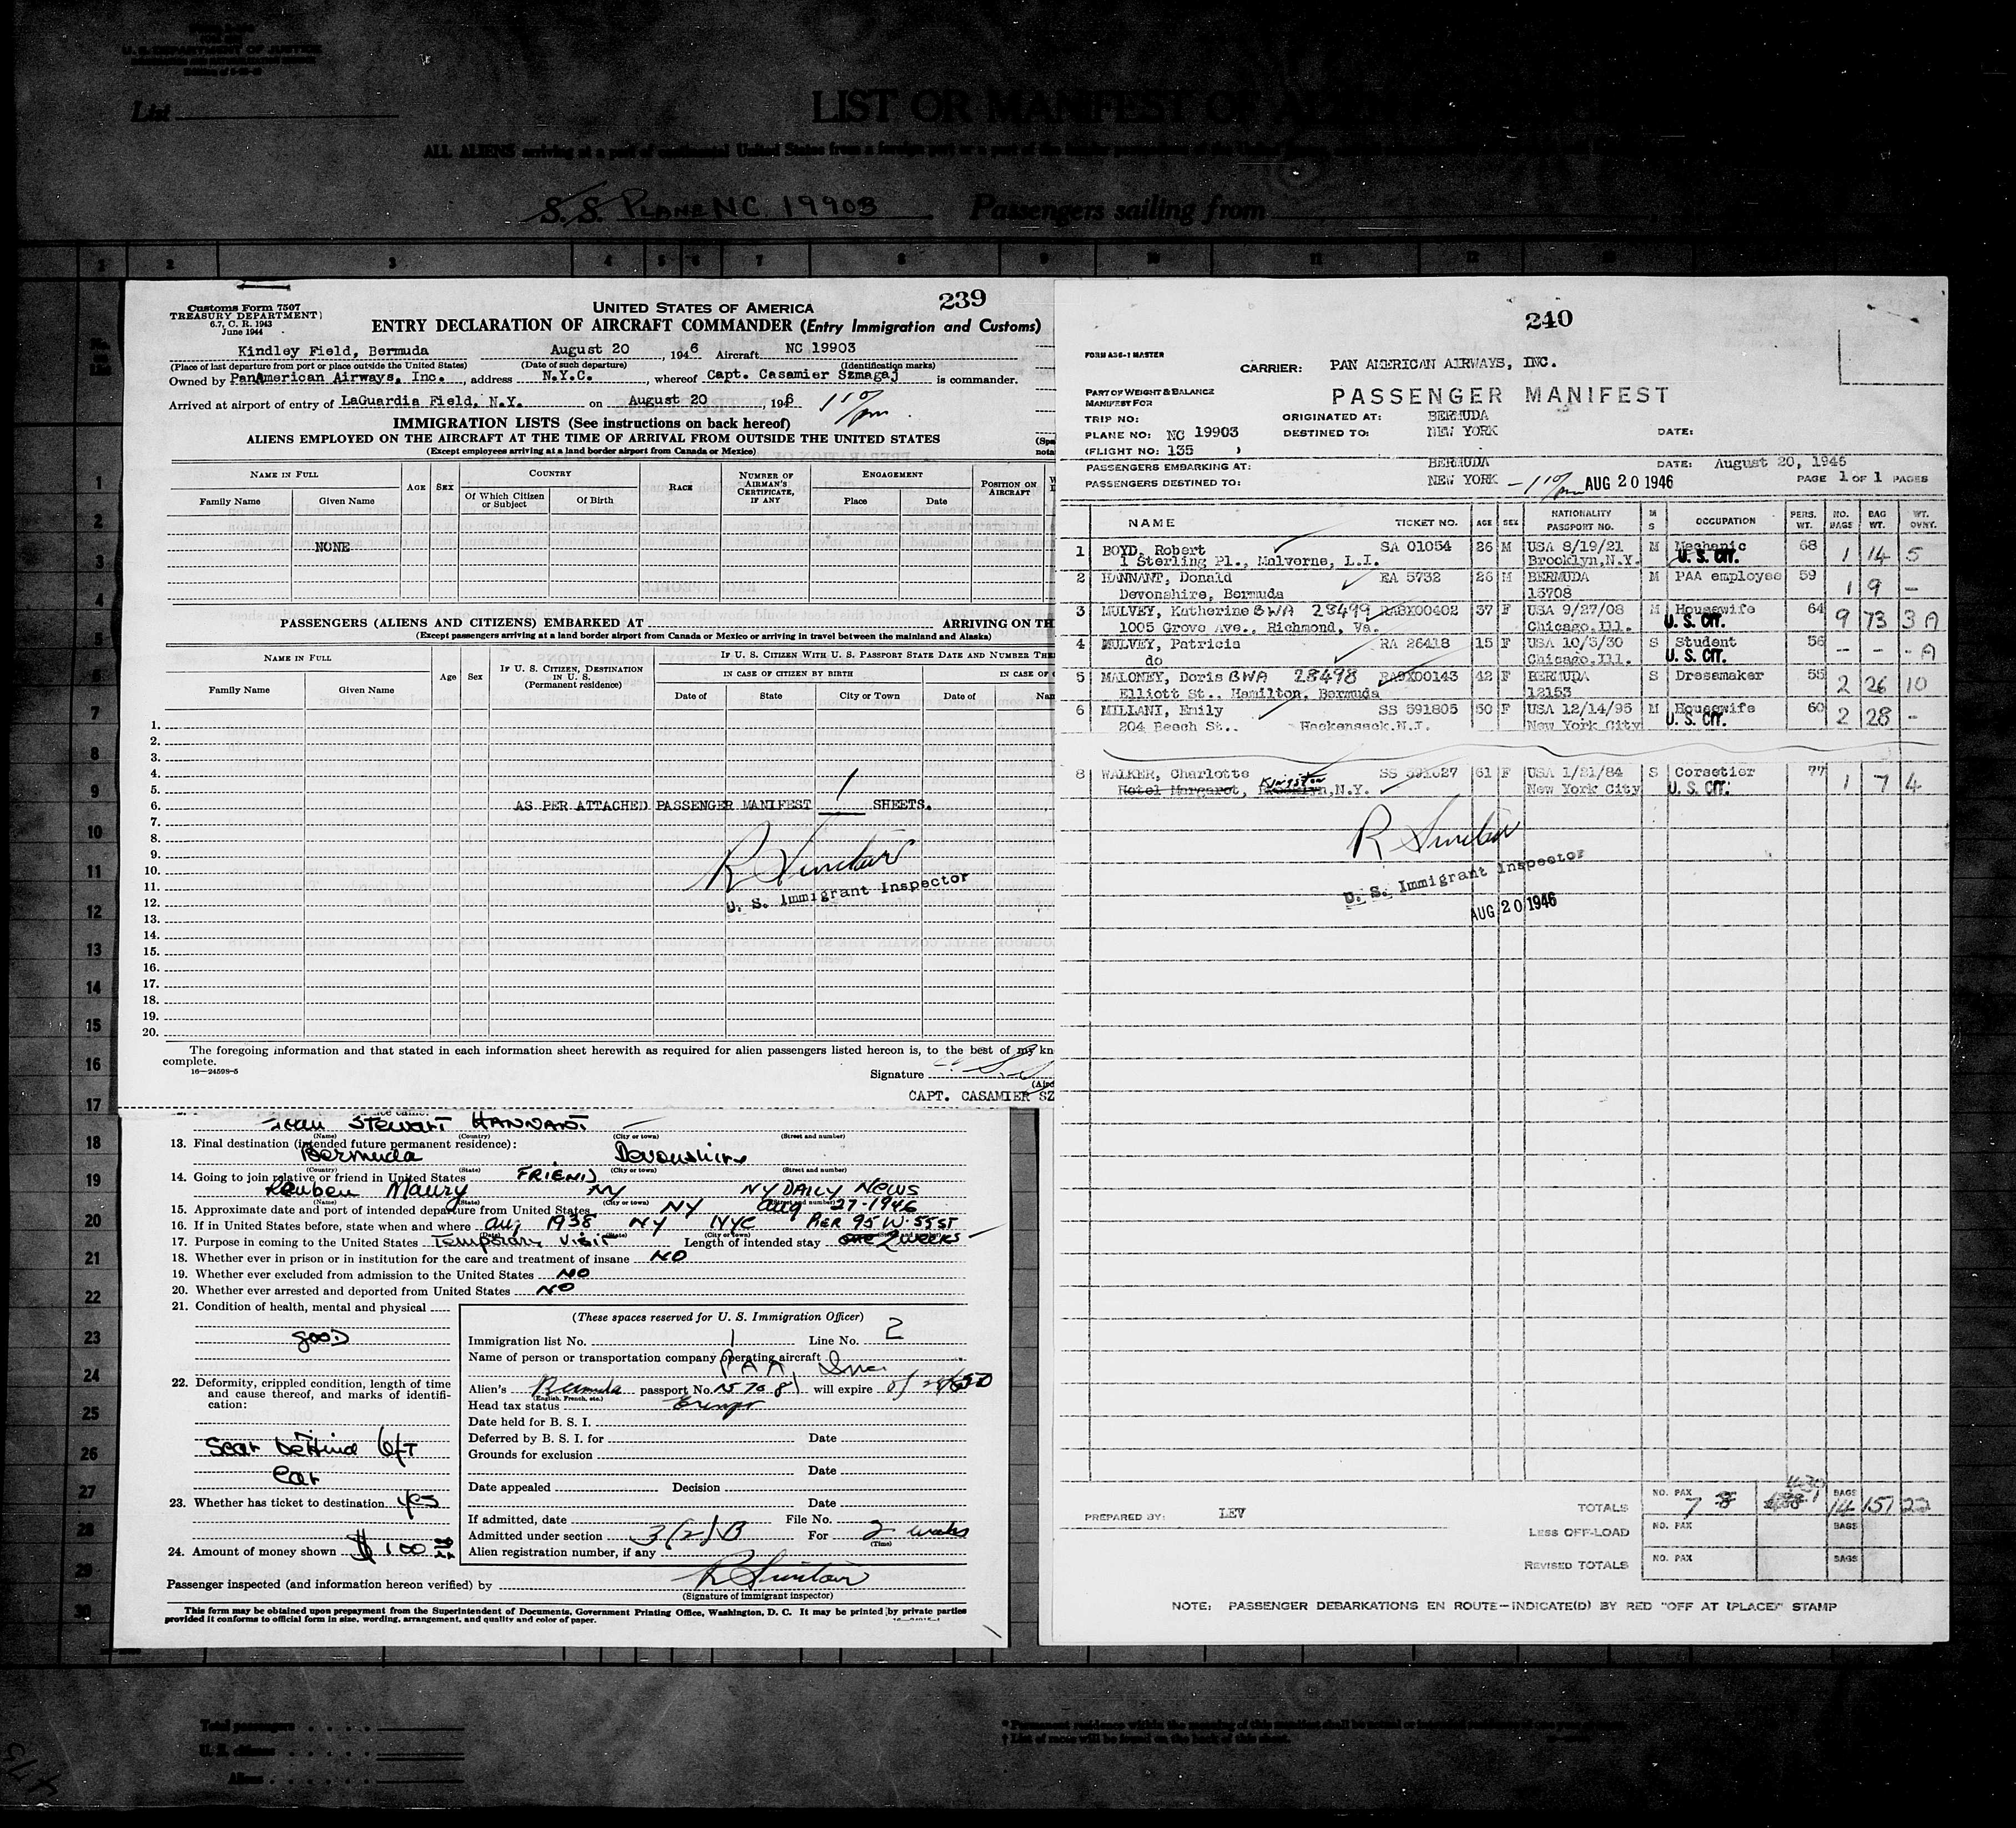 U. S. DEPARTMENT OF JUSTICE
List
LIST OR MANIFEST OF ALIEN
ALL ALIENS arriving at a port of continental United States from a foreign port or a port of the insular possessions of the United States
S. S. PLANE NC 19903 Passengers sailing from
1 2 3 4 5 6 7 8 9 10 11 12
Customs Form 7507
TREASURY DEPARTMENT
6.7, C. R. 1943
June 1944
UNITED STATES OF AMERICA
239
ENTRY DECLARATION OF AIRCRAFT COMMANDER (Entry Immigration and Customs)
Kindley Field, Bermuda August 20, 1946 Aircraft NC 19903
(Place of last departure from port or place outside the United States) (Date of such departure) (Identification marks)
Owned by PanAmerican Airways, Inc., address N.Y.C., whereof Capt. Casamier Szmagaj is commander.
Arrived at airport of entry of LaGuardia Field, N.Y. on August 20, 1946 1 10/pm.
IMMIGRATION LISTS (See instructions on back hereof)
ALIENS EMPLOYED ON THE AIRCRAFT AT THE TIME OF ARRIVAL FROM OUTSIDE THE UNITED STATES
(Except employees arriving at a land border airport from Canada or Mexico)
NAME IN FULL AGE SEX COUNTRY RACE NUMBER OF AIRMAN'S CERTIFICATE, IF ANY ENGAGEMENT POSITION ON AIRCRAFT
Family Name Given Name Of Which Citizen or Subject Of Birth Place Date
NONE
PASSENGERS (ALIENS AND CITIZENS) EMBARKED AT ARRIVING ON TH
(Except passengers arriving at a land border airport from Canada or Mexico or arriving in travel between the mainland and Alaska)
NAME IN FULL Age Sex IF U. S. CITIZEN, DESTINATION IN U. S. (Permanent residence) IF U. S. CITIZEN WITH U. S. PASSPORT STATE DATE AND NUMBER THE
IN CASE OF CITIZEN BY BIRTH IN CASE OF
Family Name Given Name Date of State City or Town Date of Nam
1.
2.
3.
4.
5.
6. AS PER ATTACHED PASSENGER MANIFEST 1 SHEETS.
7.
8.
9.
10.
11.
12.
13.
14.
15.
16.
17.
18.
19.
20.
R Sinclair
U. S. Immigrant Inspector
The foregoing information and that stated in each information sheet herewith as required for alien passengers listed hereon is, to the best of my kn
complete.
16—24598-5
Signature
CAPT. CASAMIER SZ
STEWART HANNANT
(Name) (Country) (City or town) (Street and number)
13. Final destination (intended future permanent residence):
Bermuda Devonshire
(Country) (State) (City or town) (Street and number)
14. Going to join relative or friend in United States FRIEND
Reuben Maury NY NY DAILY NEWS
(Name) (State) (City or town) (Street and number)
15. Approximate date and port of intended departure from United States NY Aug 27-1946
16. If in United States before, state when and where Aug 1938 NY NYC PIER 95 W. 55 ST
17. Purpose in coming to the United States Temporary visit Length of intended stay one 2 weeks
18. Whether ever in prison or in institution for the care and treatment of insane NO
19. Whether ever excluded from admission to the United States NO
20. Whether ever arrested and deported from United States NO
21. Condition of health, mental and physical
good
22. Deformity, crippled condition, length of time and cause thereof, and marks of identification:
Scar behind left
ear
23. Whether has ticket to destination yes
24. Amount of money shown $100
(These spaces reserved for U. S. Immigration Officer)
Immigration list No. 1 Line No. 2
Name of person or transportation company operating aircraft P A A Inc.
Alien's Bermuda passport No. 15708 will expire
(English, French, etc.)
Head tax status Exempt
Date held for B. S. I.
Deferred by B. S. I. for Date
Grounds for exclusion
Date
Date appealed Decision
Date
If admitted, date File No.
Admitted under section 3(2)B For 2 weeks
(Time)
Alien registration number, if any
Passenger inspected (and information hereon verified) by R Sinclair
(Signature of immigrant inspector)
This form may be obtained upon prepayment from the Superintendent of Documents, Government Printing Office, Washington, D. C. It may be printed by private parties
provided it conforms to official form in size, wording, arrangement, and quality and color of paper.
240
FORM A36-1 MASTER
CARRIER: PAN AMERICAN AIRWAYS, INC.
PART OF WEIGHT & BALANCE
MANIFEST FOR
PASSENGER MANIFEST
TRIP NO: ORIGINATED AT: BERMUDA
PLANE NO: NC 19903 DESTINED TO: NEW YORK DATE:
(FLIGHT NO: 135 )
PASSENGERS EMBARKING AT: BERMUDA DATE: August 20, 1946
PASSENGERS DESTINED TO: NEW YORK - 1 10/pm AUG 20 1946 PAGE 1 OF 1 PAGES
NAME TICKET NO. AGE SEX NATIONALITY PASSPORT NO. M S OCCUPATION PERS. WT. NO. BAGS BAG WT. WT. OVNT.
1 BOYD, Robert SA 01054 26 M USA 8/19/21 M Mechanic 68 1 14 5
1 Sterling Pl., Malverne, L.I. Brooklyn,N.Y. U. S. CIT.
2 HANNANT, Donald RA 5732 26 M BERMUDA M PAA employee 59 1 9 -
Devonshire, Bermuda 15708
3 MULVEY, Katherine BWA 28499 RABX00402 37 F USA 9/27/08 M Housewife 64 9 73 3 A
1005 Grove Ave., Richmond, Va. Chicago,Ill. U. S. CIT.
4 MULVEY, Patricia RA 26418 15 F USA 10/5/30 S Student 56 - - - A
do Chicago,Ill. U. S. CIT.
5 MALONEY, Doris BWA 28498 RABX00143 42 F BERMUDA S Dressmaker 55 2 26 10
Elliott St., Hamilton, Bermuda 12153
6 MILLANI, Emily SS 591805 50 F USA 12/14/95 M Housewife 60 2 28 -
204 Beech St., Hackensack.N.J. New York City U. S. CIT.
8 WALKER, Charlotte SS 591627 61 F USA 1/31/84 S Corsetier 77 1 7 4
Hotel Margaret, Brooklyn,N.Y. Kingston New York City U. S. CIT.
R Sinclair
U. S. Immigrant Inspector
AUG 20 1946
PREPARED BY: LEV
TOTALS NO. PAX 7 8 BAGS 14 157 22
LESS OFF-LOAD NO. PAX BAGS
REVISED TOTALS NO. PAX BAGS
NOTE: PASSENGER DEBARKATIONS EN ROUTE—INDICATE(D) BY RED "OFF AT (PLACE)" STAMP
Total passengers
U. S. citizens
Aliens
† List of races will be found on the back of this sheet.